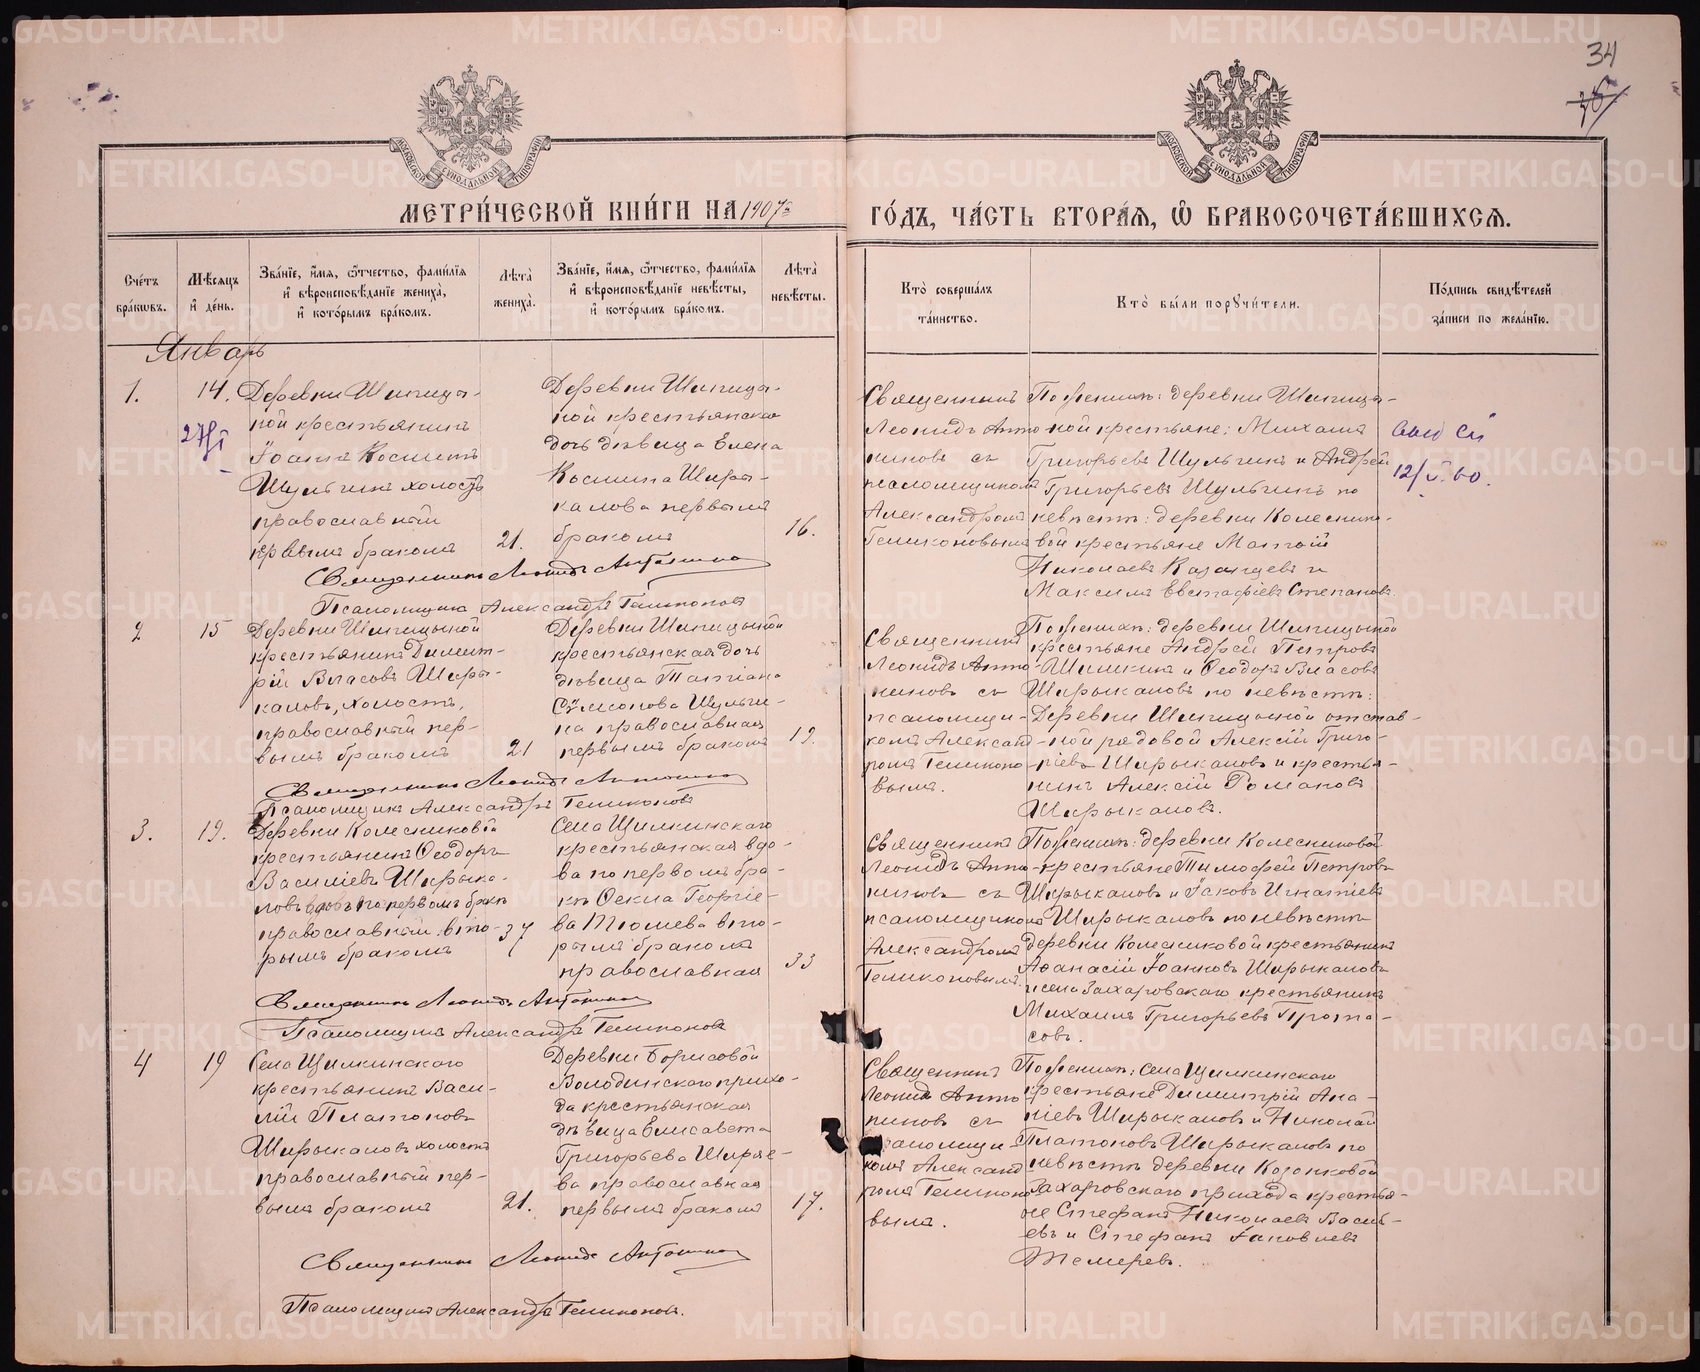 34
МЕТРИ́ЧЕСКОЙ КНИ́ГИ НА 1907 г
ГО́ДЪ, ЧА́СТЬ ВТОРА́Я, Ѽ БРАКОСОЧЕТА́ВШИХСЯ.
Сче́тъ бра́ковъ.
Мѣ́сяцъ и́ де́нь.
Зва́нїе, и́мя, ѻ́тчество, фами́лїя
и́ вѣроисповѣ́данїе жениха̀,
и́ кото́рымъ бра́комъ.
Лѣта̀ жениха̀.
Зва́нїе, и́мя, ѻ́тчество, фами́лїя
и́ вѣроисповѣ́данїе невѣ́сты,
и́ кото́рымъ бра́комъ.
Лѣта̀ невѣ́сты.
Кто̀ соверша́лъ
та́инство.
Кто̀ бы́ли порꙋчи́тели.
По́дпись свидѣ́телей
за́писи по жела́нїю.
Январь
1.
14.
Деревни Шипицы-
ной крестьянинъ
Іоаннъ Косминъ
Шульгинъ холостъ
православный
первымъ бракомъ
21.
Деревни Шипицы-
ной крестьянская
дочь дѣвица Елена
Космина Ширы-
калова первымъ
бракомъ
16.
Священникъ
Леонидъ Анто-
ниновъ съ
псаломщикомъ
Александромъ
Геликоновымъ
По женихѣ: деревни Шипицы-
ной крестьяне: Михаилъ
Григорьевъ Шульгинъ и Андрей
Григорьевъ Шульгинъ по
невѣстѣ: деревни Колеснико-
вой крестьяне Матѳій
Николаевъ Казанцевъ и
Максимъ Евстафіевъ Степановъ.
12/V.60.
Священникъ Леонидъ Антониновъ
Псаломщикъ Александръ Геликоновъ
2
15
Деревни Шипицыной
крестьянинъ Димит-
рій Власовъ Ширы-
каловъ, холостъ,
православный пер-
вымъ бракомъ
21
Деревни Шипицыной
крестьянская дочь
дѣвица Татіана
Сѵмеонова Шульги-
на православная
первымъ бракомъ
19.
Священникъ
Леонидъ Анто-
ниновъ съ
псаломщи-
комъ Александ-
ромъ Геликоно-
вымъ.
По женихѣ: деревни Шипицыной
крестьяне Андрей Петровъ
Шишкинъ и Ѳеодоръ Власовъ
Ширыкаловъ по невѣстѣ:
Деревни Шипицыной отстав-
ной рядовой Алексій Григо-
ріевъ Ширыкаловъ и крестья-
нинъ Алексій Романовъ
Ширыкаловъ.
Священникъ Леонидъ Антониновъ
Псаломщикъ Александръ Геликоновъ
3.
19.
Деревни Колесниковой
крестьянинъ Ѳеодоръ
Василіевъ Ширыка-
ловъ вдовъ по первомъ бракѣ
православный вто-
рымъ бракомъ
37
Села Щилкинскаго
крестьянская вдо-
ва по первомъ бра-
кѣ Ѳекла Георгіе-
ва Тюшева вто-
рымъ бракомъ
православная
33
Священникъ
Леонидъ Анто-
ниновъ съ
псаломщикомъ
Александромъ
Геликоновымъ
По женихѣ: деревни Колесниковой
крестьяне Тимофей Петровъ
Ширыкаловъ и Іаковъ Игнатіевъ
Ширыкаловъ по невѣстѣ
деревни Колесниковой крестьянинъ
Аѳанасій Іоанновъ Ширыкаловъ
и села Захаровскаго крестьянинъ
Михаилъ Григорьевъ Прота-
совъ.
Священникъ Леонидъ Антониновъ
Псаломщикъ Александръ Геликоновъ
4
19
Села Щилкинскаго
крестьянинъ Васи-
лій Платоновъ
Ширыкаловъ холостъ
православный пер-
вымъ бракомъ
21.
Деревни Борисовой
Володинскаго прихо-
да крестьянская
дѣвица Елисавета
Григорьева Ширяе-
ва православная
первымъ бракомъ
17.
Священникъ
Леонидъ Анто-
ниновъ съ
псаломщи-
комъ Александ-
ромъ Геликоно-
вымъ.
По женихѣ: села Щилкинскаго
крестьяне Димитрій Ана-
ніевъ Ширыкаловъ и Николай
Платоновъ Ширыкаловъ по
невѣстѣ деревни Козонковой
Захаровскаго прихода крестья-
не Стефанъ Николаевъ Василь-
евъ и Стефанъ Іаковлевъ
Темеревъ.
Священникъ Леонидъ Антониновъ
Псаломщикъ Александръ Геликоновъ.